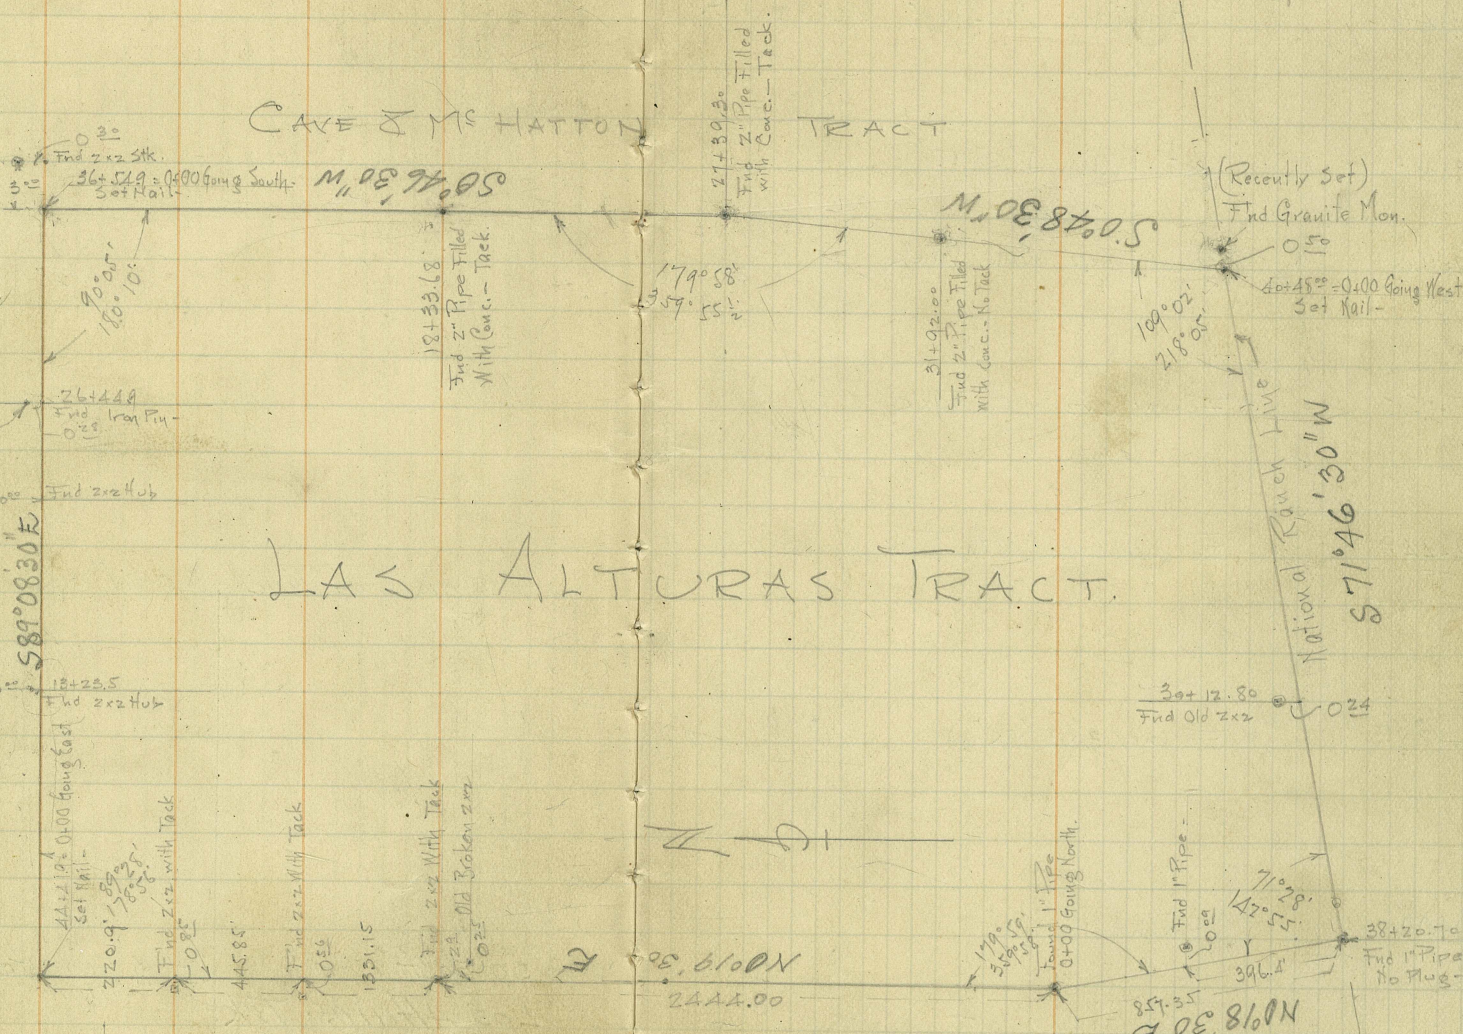 CAVE & Mc HATTON TRACT
0 30
Fnd 2x2 Stk.
36+54.9 = 0+00 Going South
Set Nail-
S0°46'30"W
27+39.30
Fnd 2" Pipe Filled
with Conc. — Tack.
S0°48'30"W
(Recently Set)
Fnd Granite Mon.
0 50
40+48 = 0+00 Going West
Set Nail-
18+33.68
Fnd 2" Pipe Filled
With Conc. - Tack.
179° 58'
31+92.00
Fnd 2" Pipe Filled
with Conc. - No Tack
26+44.8
Fnd Iron Pin-
Fnd 2x2 Hub
S89°08'30"E
National Ranch Line
S71°46'30"W
LAS ALTURAS TRACT.
13+23.5
Fnd 2x2 Hub
39+12.80
Fnd Old 2x2
0 24
0+00 Going East
Set Nail-
220.9'
Fnd 2x2 with Tack
0.85
445.85'
Fnd 2x2 With Tack
1331.15
Fnd 2x2 With Tack
Old Broken 2x2
N
N0°19'30"E
2444.00
Found 1" Pipe
0+00 Going North.
Fnd 1" Pipe-
71°28'
38+20.70
Fnd 1" Pipe
No Plug-
396.5
857.35
N0°18'30"E